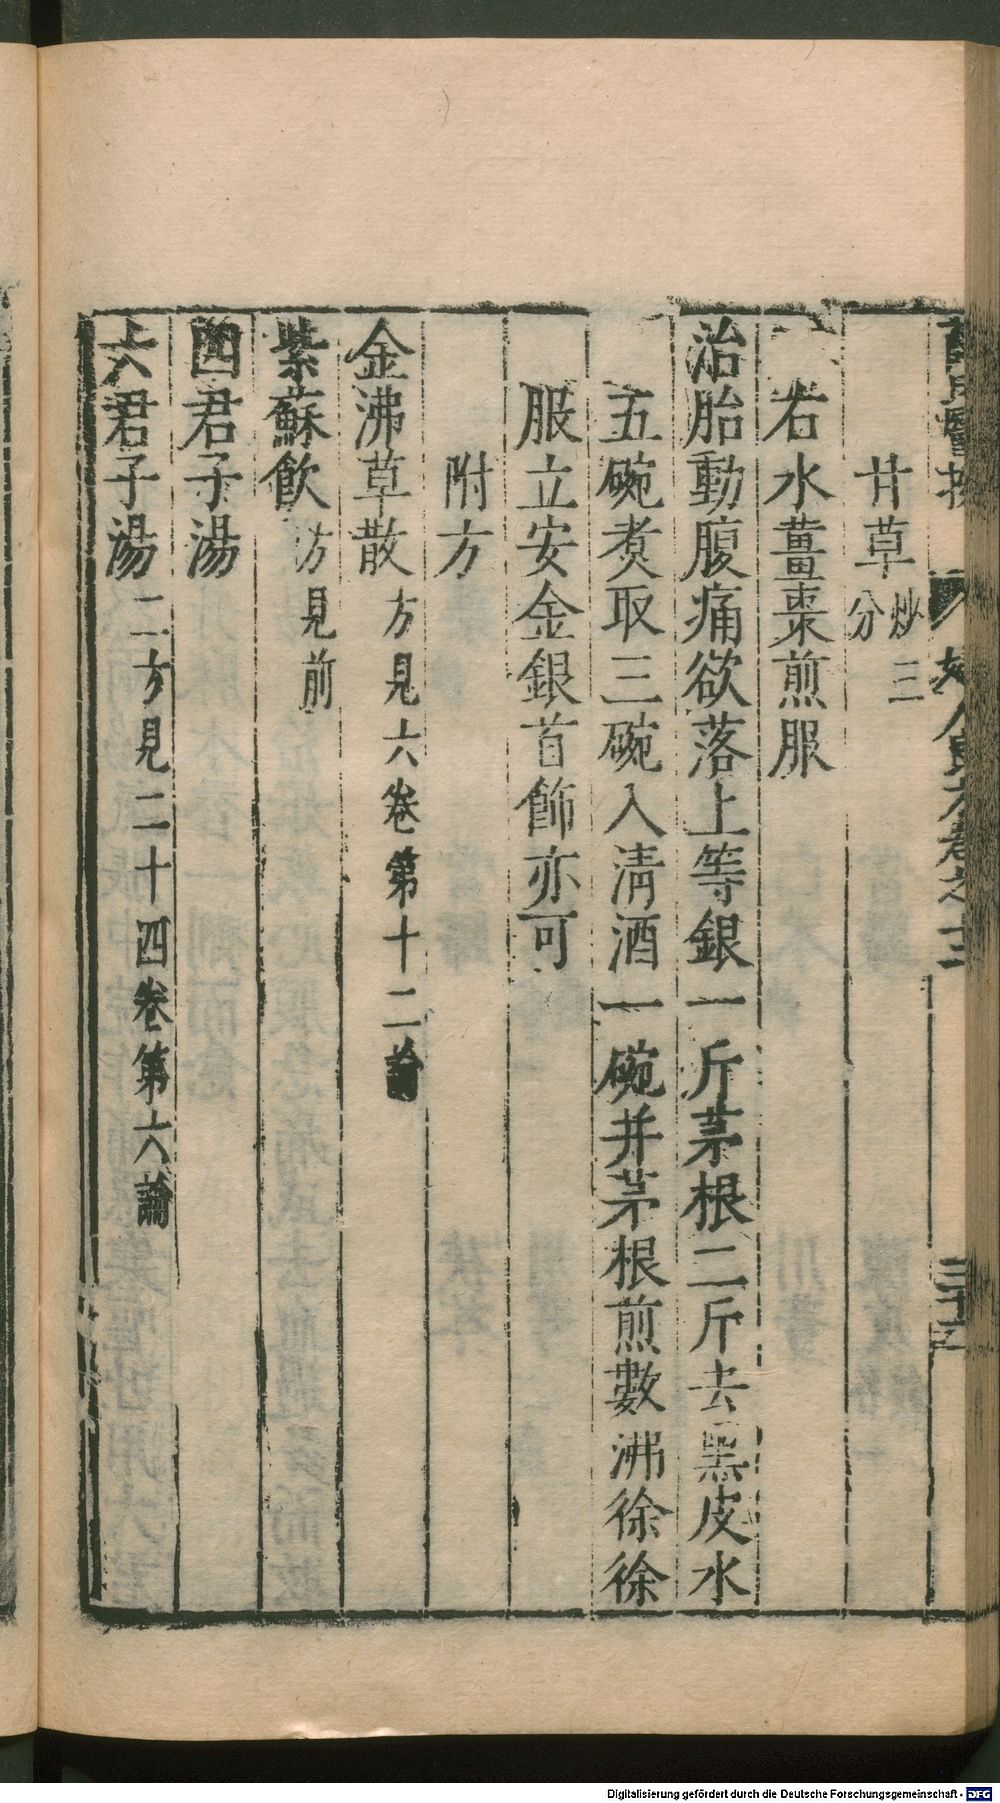 薛氏醫按 婦人良方卷之十二 三十五
甘草炒三分
右水薑棗煎服
治胎動腹痛欲落上等銀一斤茅根二斤去黑皮水
五碗煮取三碗入清酒一碗并茅根煎數沸徐徐
服立安金銀首飾亦可
附方
金沸草散方見六卷第十二論
紫蘇飲方見前
四君子湯
六君子湯二方見二十四卷第六論
Digitalisierung gefördert durch die Deutsche Forschungsgemeinschaft - DFG